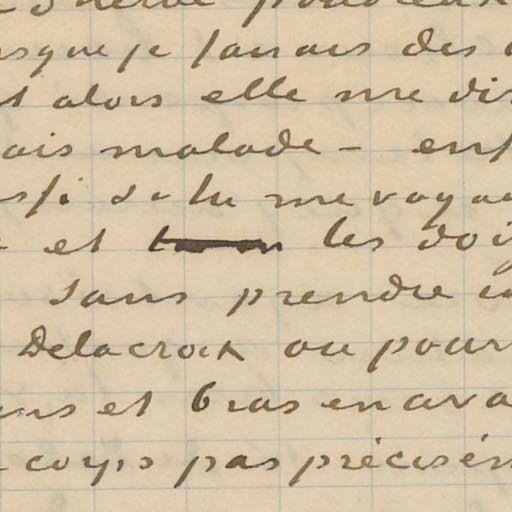 sque je faisais des
t alors elle me dis
ais malade - enf
si si tu me voya
et les doig
sans prendre
Delacroix ou pour
ns et bras en ava
corps pas précisém